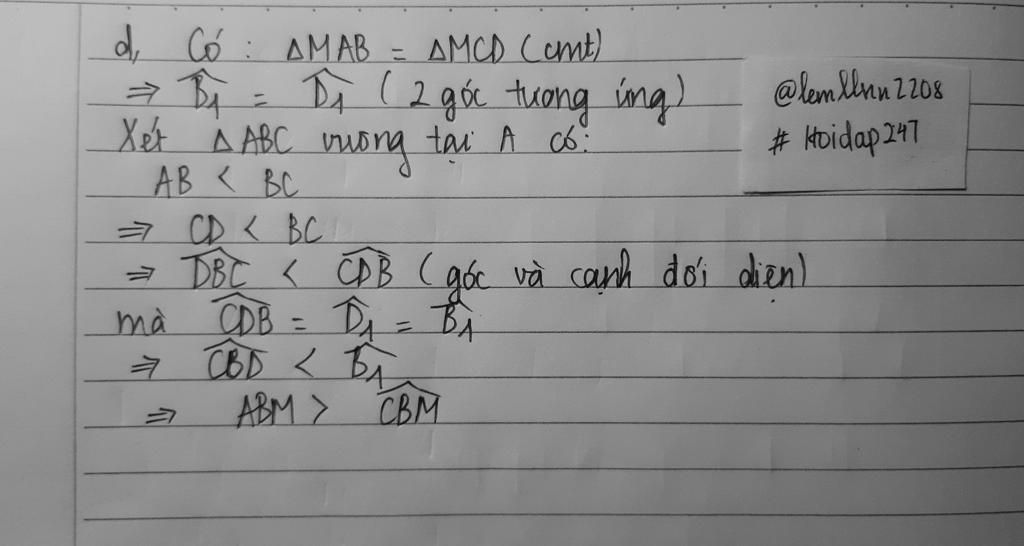 d, Có : ΔMAB = ΔMCD (cmt)
⇒ B̂₁ = D̂₁ ( 2 góc tương ứng)
Xét ΔABC vuông tại A có:
AB < BC
⇒ CD < BC
⇒ \widehat{DBC} < \widehat{CDB} (góc và cạnh đối diện)
mà \widehat{CDB} = D̂₁ = B̂₁
⇒ \widehat{CBD} < B̂₁
⇒ ABM > \widehat{CBM}
@lemllnn2208
# Hoidap247